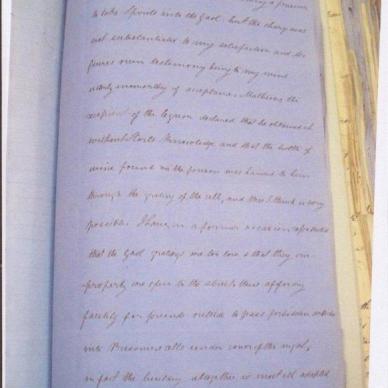 to take Spirits into the Gaol but the charge was
not substantiated to my satisfaction and the
own testimony being to my mind
unworthy of acceptance Mathews the
recipient of the liquor declared that he obtained it
without knowledge and that the bottle of
wine found in the prison was handed to him
through the grating of the cell, and this I think is very
possible. I have on a former occasion
that the Gaol gratings are too low & that they
are open to the street thus affording
facility for friends outside to pass forbidden articles
into Prisoners cells under cover of the night,
in fact the building altogether is most ill adapted